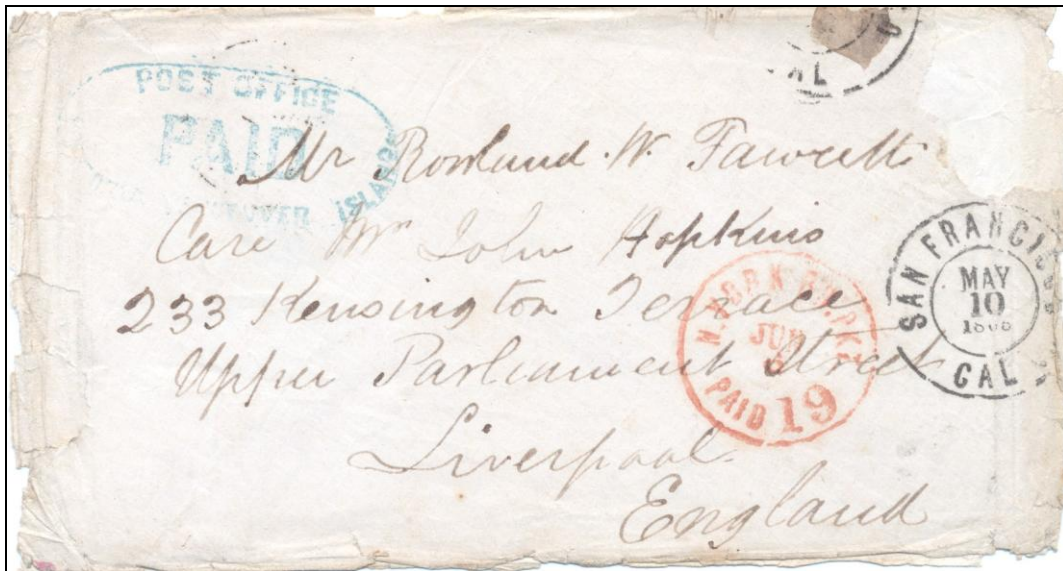 POST OFFICE
PAID
VANCOUVER ISLAND
AL
Mr Rowland W. Fawcett
Care Mr John Hopkins
233 Kensington Terrace
Upper Parliament Street
Liverpool
England
N. YORK BR. PKT
JUN
PAID 19
SAN FRANCISCO
MAY
10
CAL